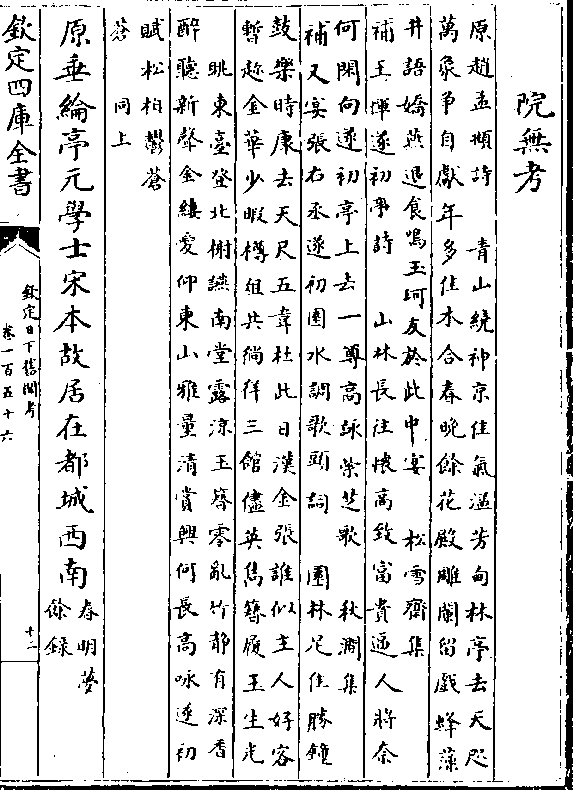 院無考
原趙孟頫詩　青山繞神京佳氣溢芳甸林亭去天咫
萬象爭自獻年多佳木合春晚餘花殿雕闌留戲蜂藻
井語嬌燕退食鳴玉珂友於此中宴　松雪齋集
補王惲遂初亭詩　山林長往懷高致富貴逼人將奈
何閑向遂初亭上去一尊高詠紫芝歌　秋澗集
補又宴張右丞遂初園水調歌頭詞　園林足佳勝鐘
鼓樂時康去天尺五韋杜此日漢金張誰似主人好客
暫趂金華少暇樽俎共徜徉三館儘英雋簪履玉生光
眺東臺登北榭讌南堂露涼玉簪零亂竹靜有深香
醉聽新聲金縷愛仰東山雅量清賞興何長高咏遂初
賦松柏鬱蒼
蒼　同上
原垂綸亭元學士宋本故居在都城西南　春明夢
餘録
欽定四庫全書
欽定日下舊聞考
卷一百五十六
十二